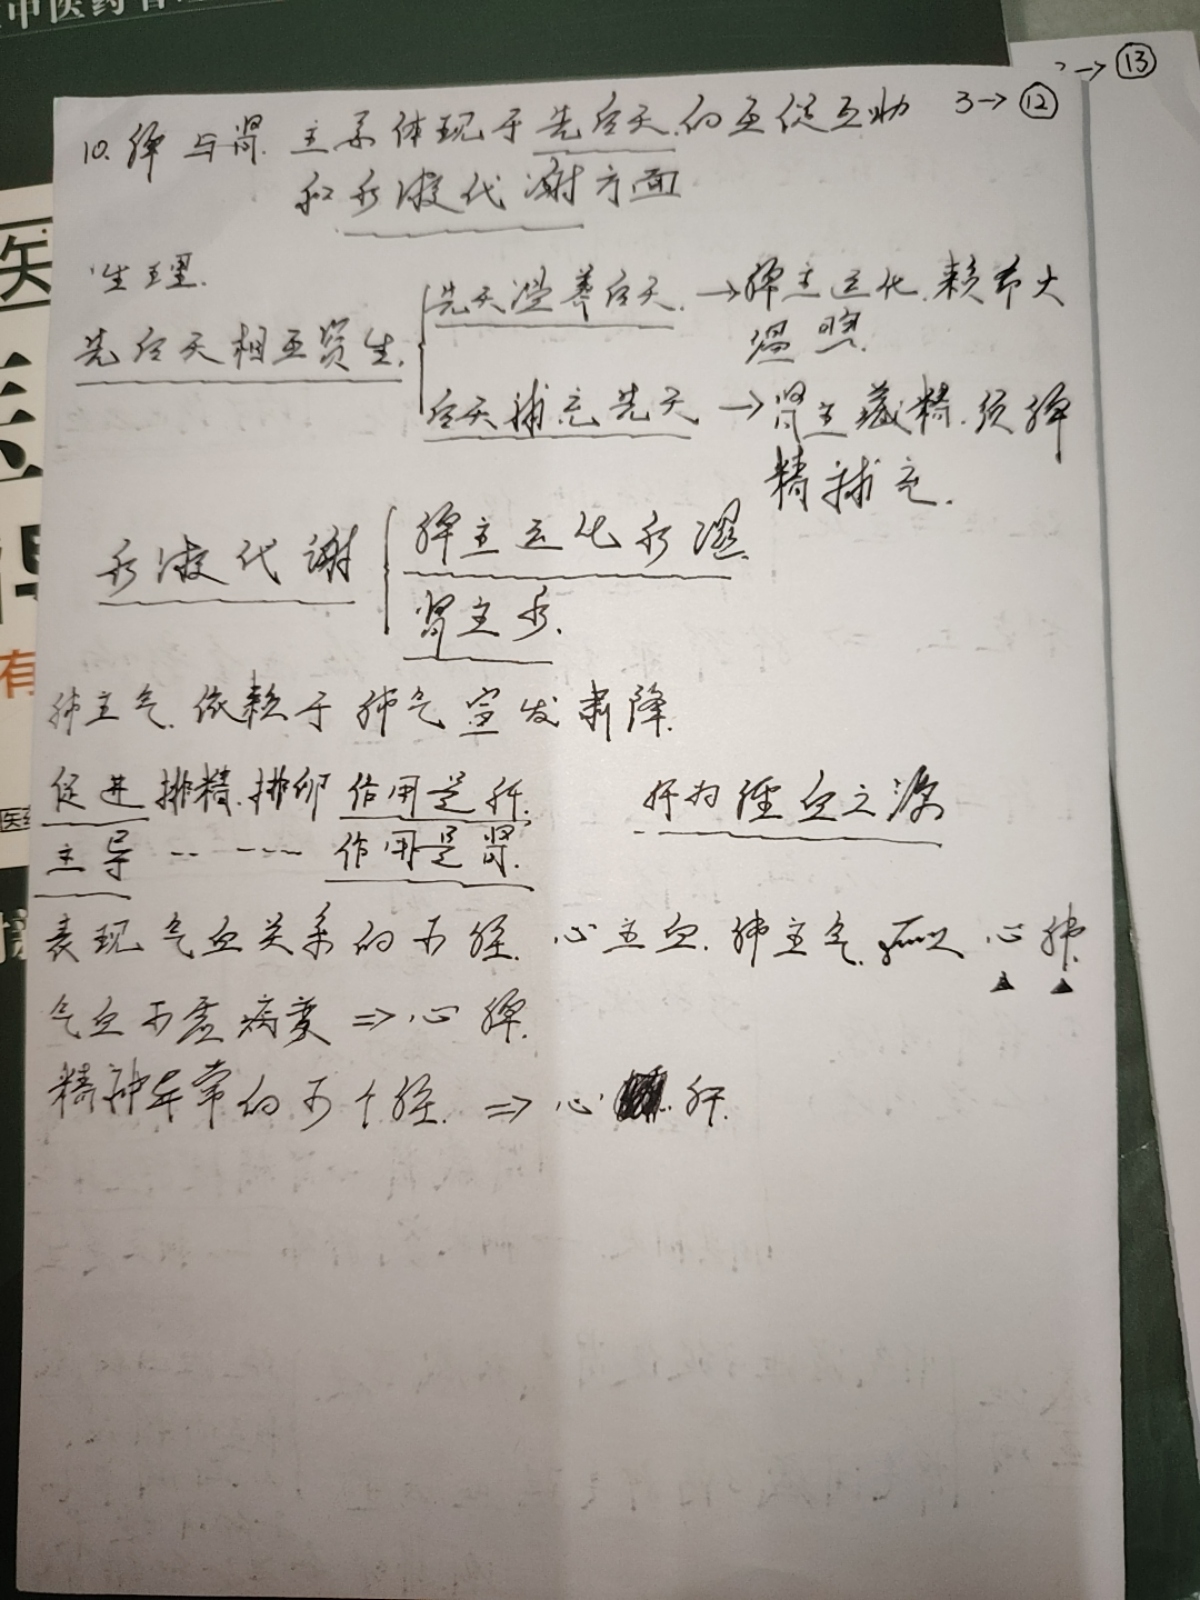 中医药管
→⑬
3→⑫
10. 脾与肾. 主系体现于先后天的互促互助
和水液代谢方面
生理.
先后天相互资生.
先天温养后天. →脾主运化.赖命火
温煦.
后天补充先天 →肾主藏精.须脾
精补充.
水液代谢
脾主运化水湿.
肾主水.
肺主气.依赖于肺气宣发肃降.
促进排精.排卵作用是肝.
肝为经血之源
主导-- ---- 作用是肾.
表现气血关系的两脏. 心主血.肺主气.所以 心肺.
气血两虚病变 => 心脾.
精神异常的两个脏. => 心 肝.
医
有